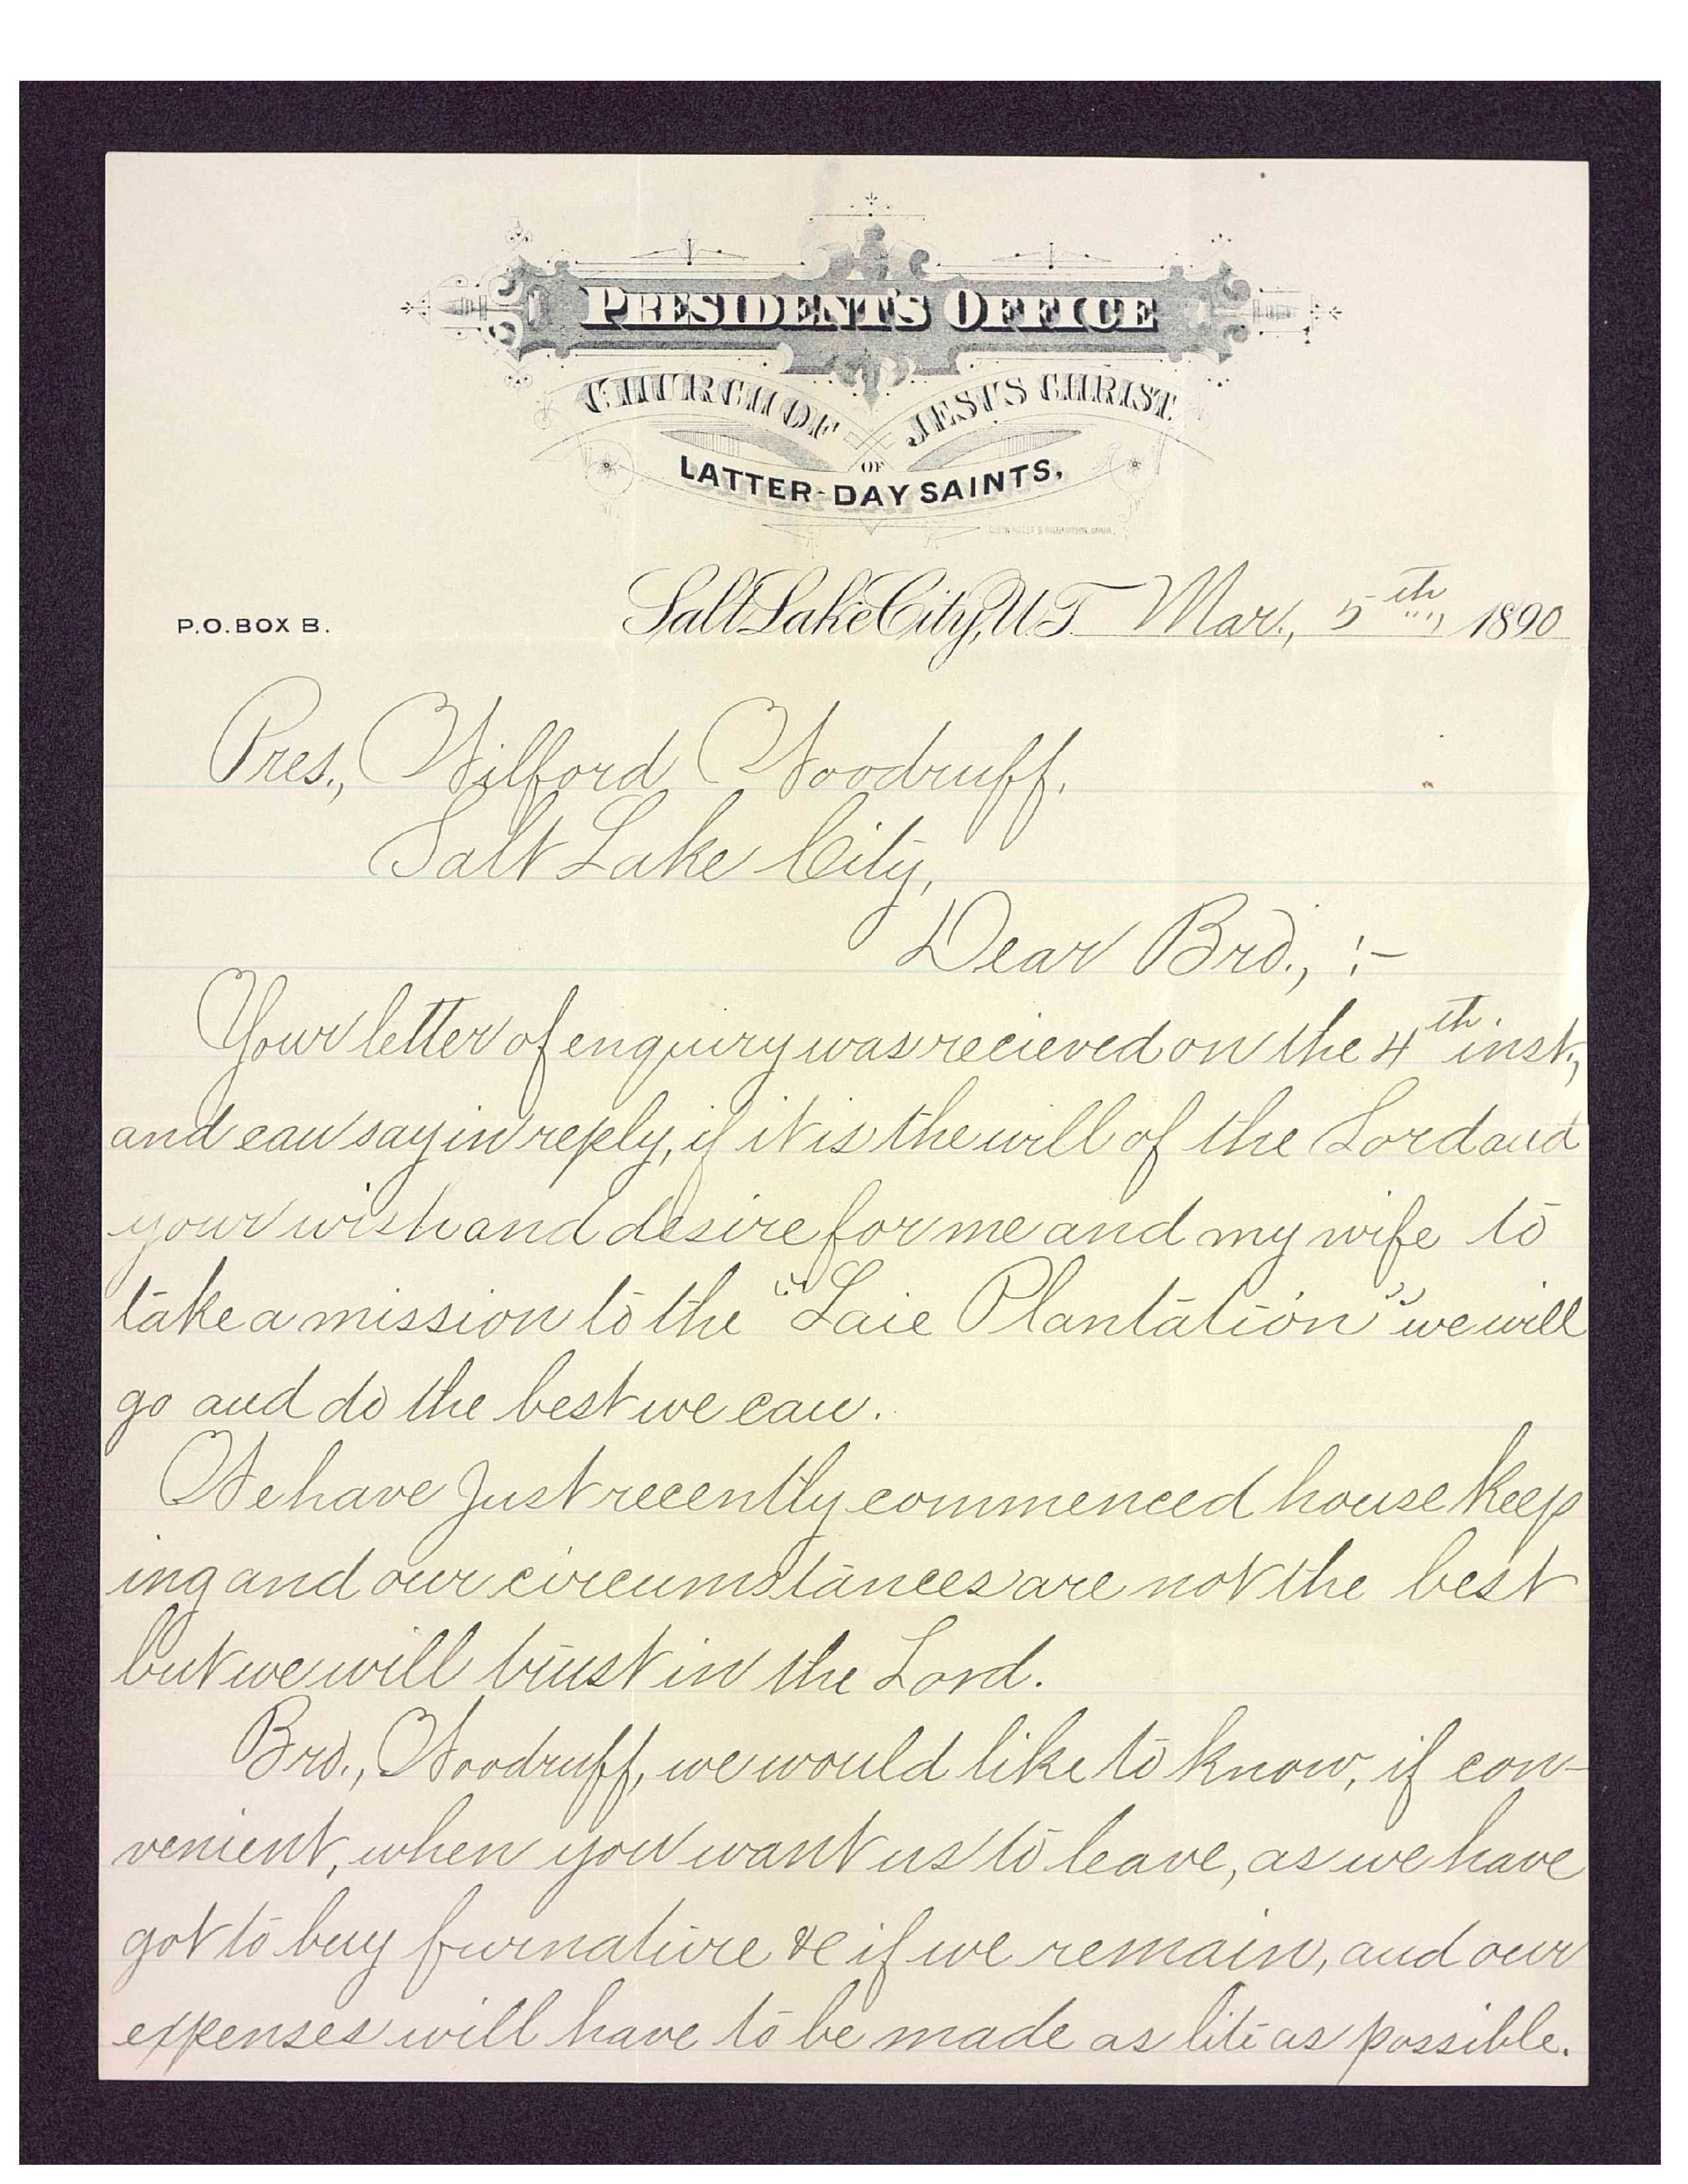 PRESIDENT'S OFFICE
CHURCH OF JESUS CHRIST
OF
LATTER-DAY SAINTS,
P.O. BOX B.
Salt Lake City, U.T. Mar., 5th 1890
Pres., Wilford Woodruff,
Salt Lake City,
Dear Bro., :-
Your letter of enquiry was recieved on the 4th inst.,
and can say in reply, if it is the will of the Lord and
your wish and desire for me and my wife to
take a mission to the "Laie Plantation" we will
go and do the best we can.
We have Just recently commenced house keep
ing and our circumstances are not the best
but we will trust in the Lord.
Bro., Woodruff, we would like to know, if con-
venient, when you want us to leave, as we have
got to buy furnature &c if we remain, and our
expenses will have to be made as lite as possible.